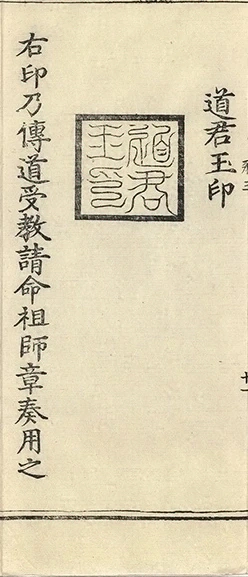 道君玉印
道君玉印
右印乃傳道受教請命祖師章奏用之